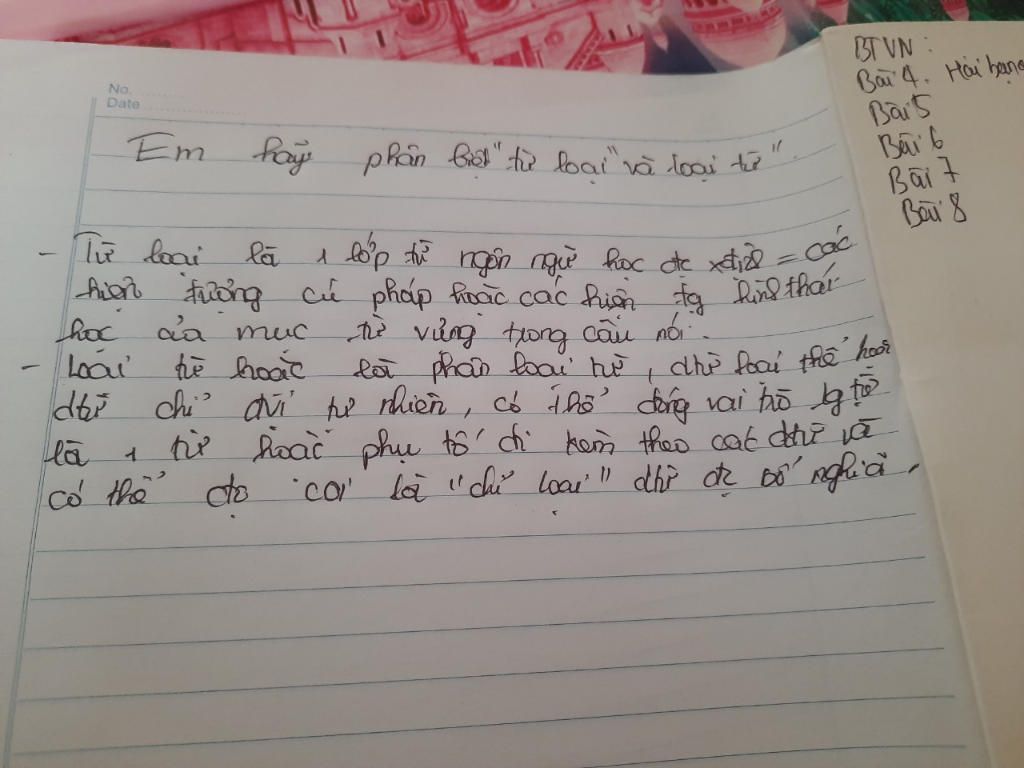 No.
Date
Em hãy phân biệt "từ loại" và loại từ".
- Từ loại là 1 lớp từ ngôn ngữ học đc xđịnh = các
hiện tượng cú pháp hoặc các hiện tg hình thái
học của mục từ vựng trong câu nói.
- Loại từ hoặc là phân loại từ, dtừ loại thể hoặc
dtừ chỉ đvị tự nhiên, có thể đóng vai trò lg từ
là 1 từ hoặc phụ tố đi kèm theo các dtừ và
có thể đc coi là "chỉ loại" dtừ đc bổ nghĩa.
BTVN:
Bài 4. Hai bạn
Bài 5
Bài 6
Bài 7
Bài 8